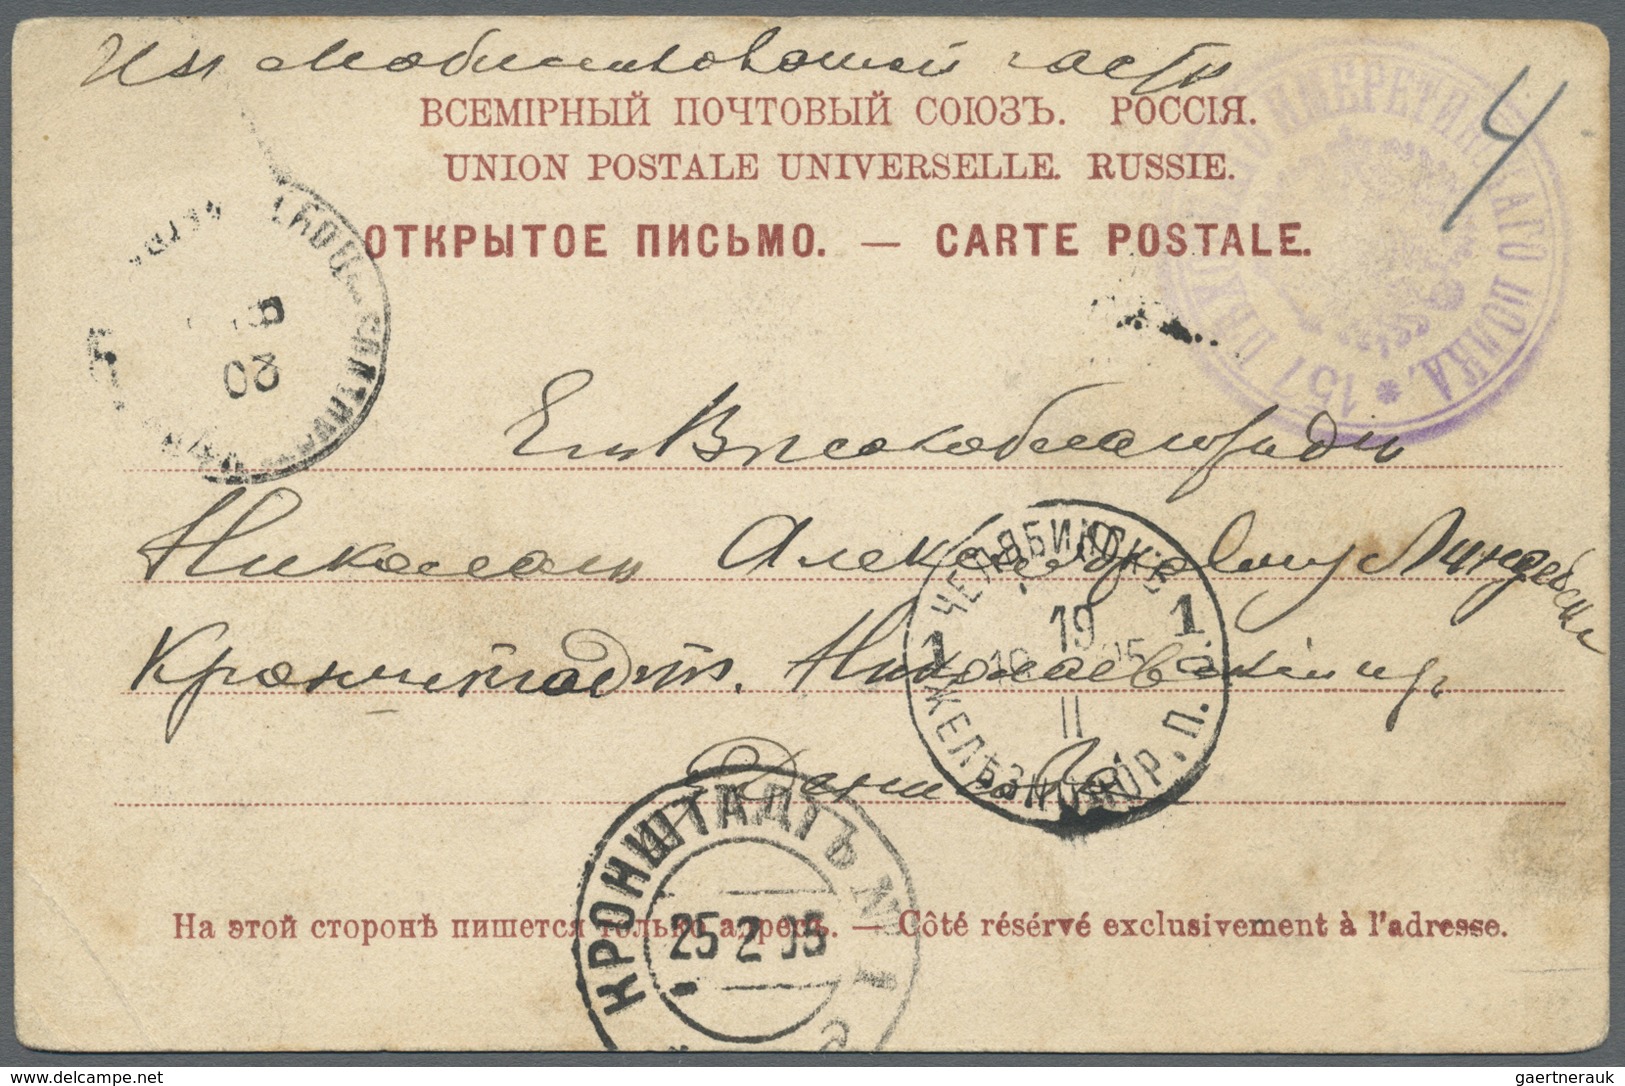 Изъ мобилизованной части
ВСЕМІРНЫЙ ПОЧТОВЫЙ СОЮЗЪ. РОССІЯ.
UNION POSTALE UNIVERSELLE. RUSSIE.
ОТКРЫТОЕ ПИСЬМО. — CARTE POSTALE.
4
157 ИМЕРЕТИНСКАГО ПОЛКА. *
03
Его Высокоблагородію
Николаю Александровичу
Кронштадтъ. Николаевскій пр.
ЧЕЛЯБИНСКЪ
1 19 1
II
ЖЕЛѢЗНОДОР. П.
КРОНШТАДТЪ
25 2 05
На этой сторонѣ пишется только адресъ. — Côté réservé exclusivement à l'adresse.
delcampe.net
gaertnerauk